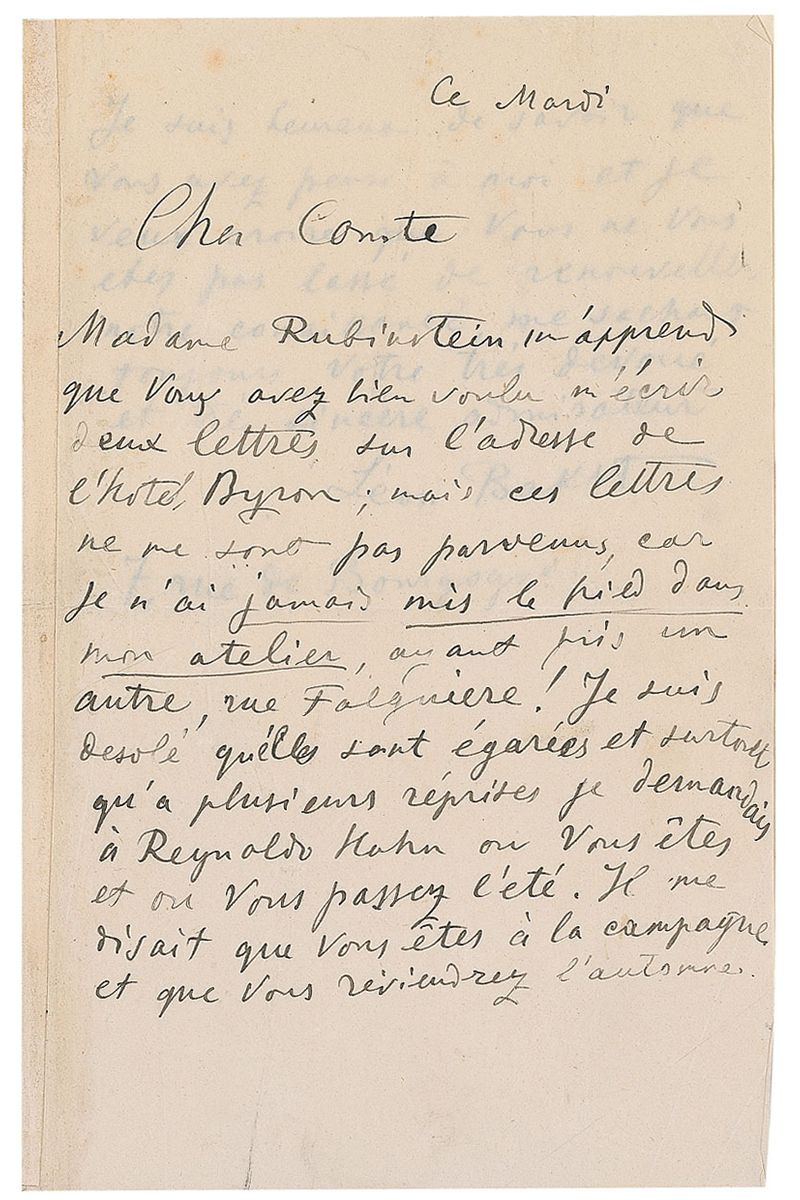 Ce Mardi
Cher Comte
Madame Rubinstein m'apprend
que Vous avez bien voulu m'écrir
deux lettres sur l'adresse de
l'hotel Byron, mais ces lettres
ne me sont pas parvenus, car
je n'ai jamais mis le pied dans
mon atelier, ayant pris un
autre, rue Falguiere! Je suis
desolé qu'elles sont égarées et surtout
qu'a plusieurs réprises je demandais
à Reynaldo Hahn ou Vous êtes
et ou Vous passez l'été. Il me
disait que Vous êtes à la campagne
et que Vous reviendrez l'automne.